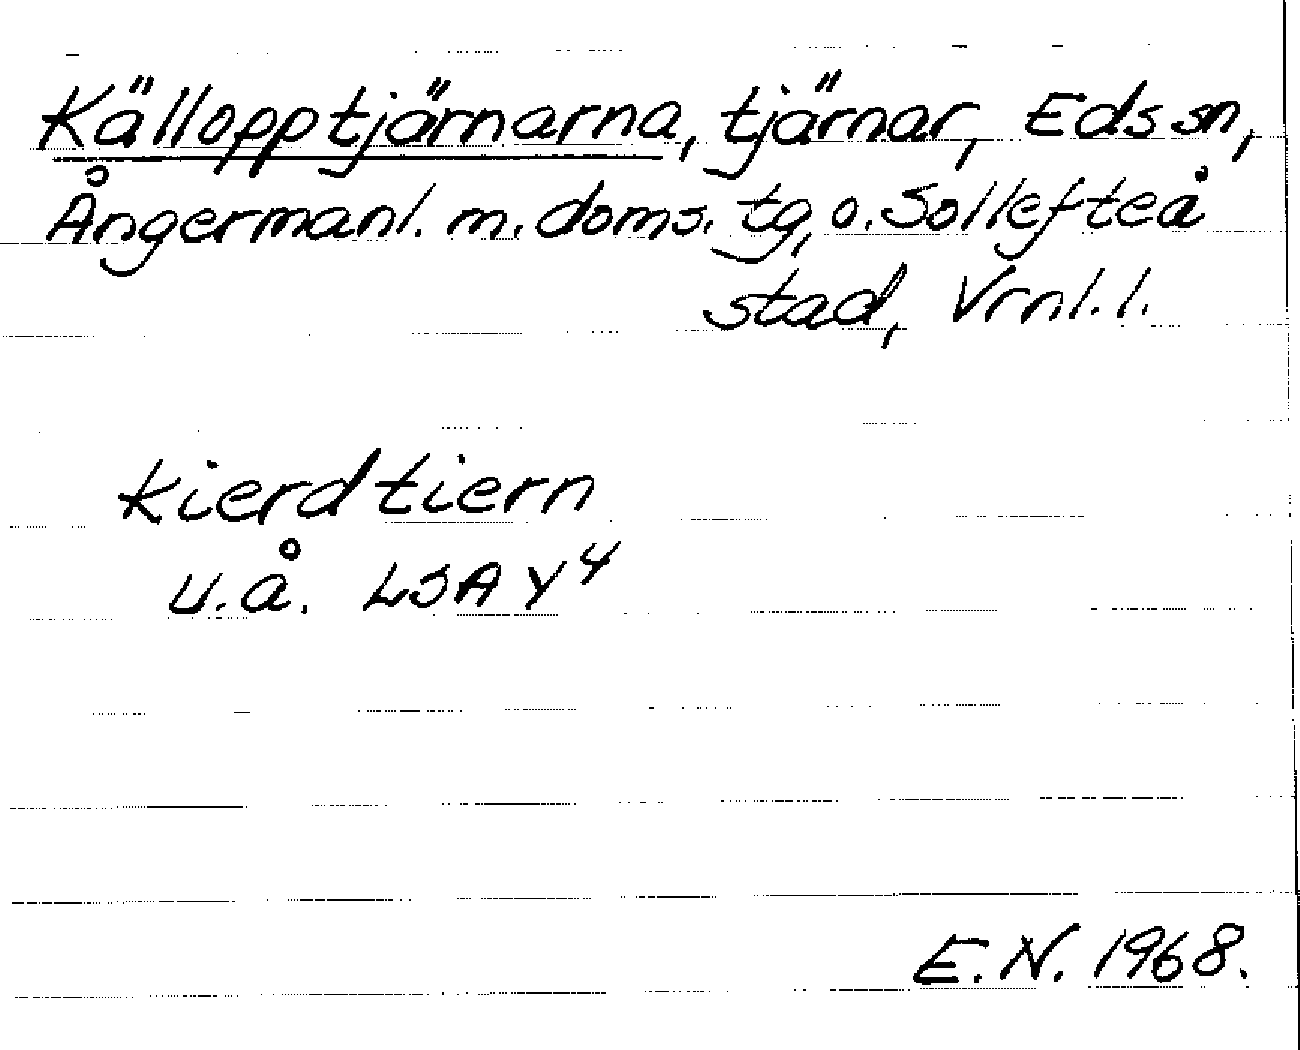 Källopptjärnarna, tjärnar, Eds sn,
Ångermanl. m. doms. tg, o. Sollefteå
stad, Vrnl. l.
Kierdtiern
u. å. LSA Y4
E. N. 1968.